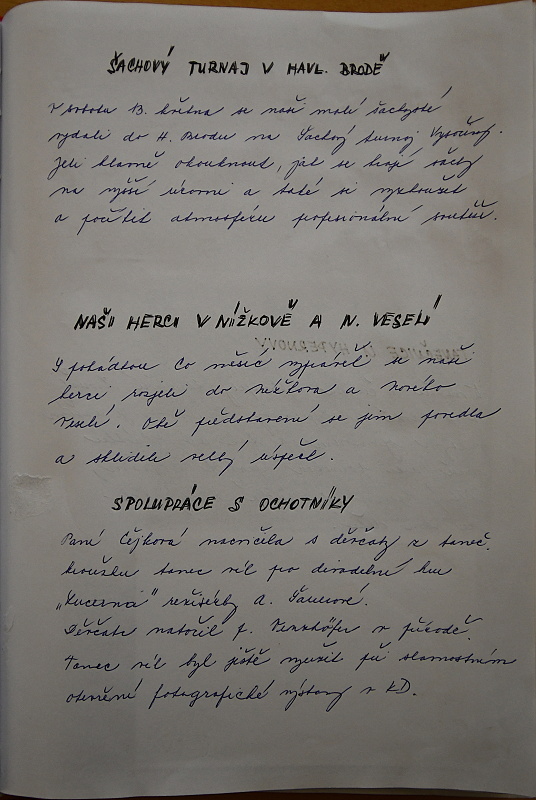 ŠACHOVÝ TURNAJ V HAVL. BRODĚ
V sobotu 13. května se naši malí šachysté
vydali do H. Brodu na Šachový turnaj Vysočiny.
Jeli hlavně okouknout, jak se hrají šachy
na vyšší úrovni a také si vyzkoušet
a pocítit atmosféru profesionální soutěže.
NAŠI HERCI V NÍŽKOVĚ A N. VESELÍ
S pohádkou Co měsíc vyprávěl se naši
herci rozjeli do Nížkova a Nového
Veselí. Obě představení se jim povedla
a sklidili velký úspěch.
SPOLUPRÁCE S OCHOTNÍKY
Paní Čejková nacvičila s děvčaty z taneč.
kroužku tanec víl pro divadelní hru
„Lucerna" režisérky A.
Děvčata natočil p. v přírodě.
Tanec víl byl ještě využit při slavnostním
otevření fotografické výstavy v KD.